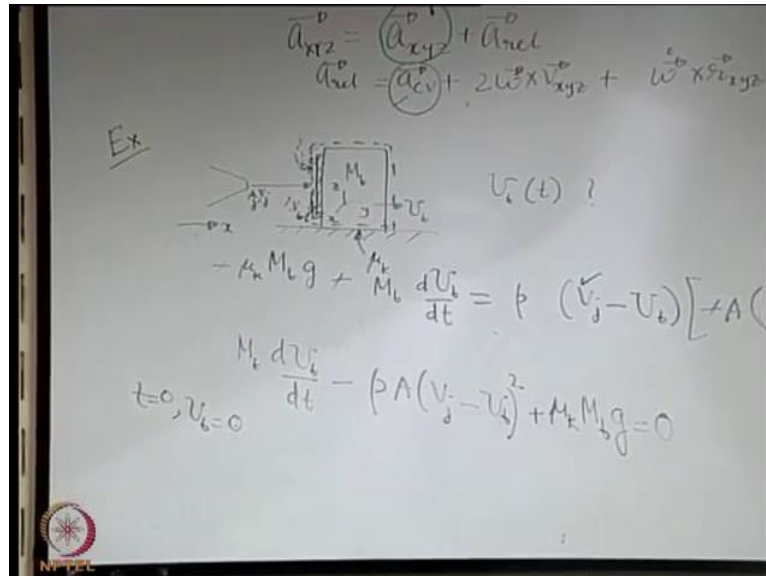 a⃗_XYZ = a⃗_xyz + a⃗_rel
a⃗_rel = a⃗_cv + 2ω⃗ × V⃗_xyz + ω̇⃗ × r⃗_xyz
Ex
M_b
A_j V_j
V_b
z
y
x
V_b
V_b(t) ?
→ x
μ_k
- μ_k M_b g - M_b dV_b/dt = ρ (V_j - V_b) [-A(
M_b dV_b/dt - ρA(V_j - V_b)² + μ_k M_b g = 0
t=0, V_b=0
NPTEL